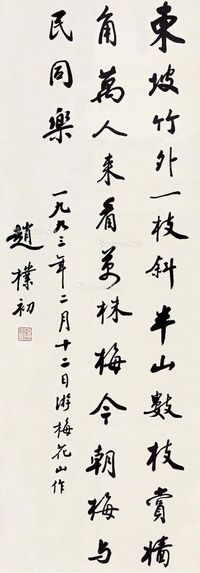 東坡竹外一枝斜半山數枝賞牆
角萬人來看萬株梅今朝梅与
民同樂
一九九三年二月十二日游梅花山作
趙樸初